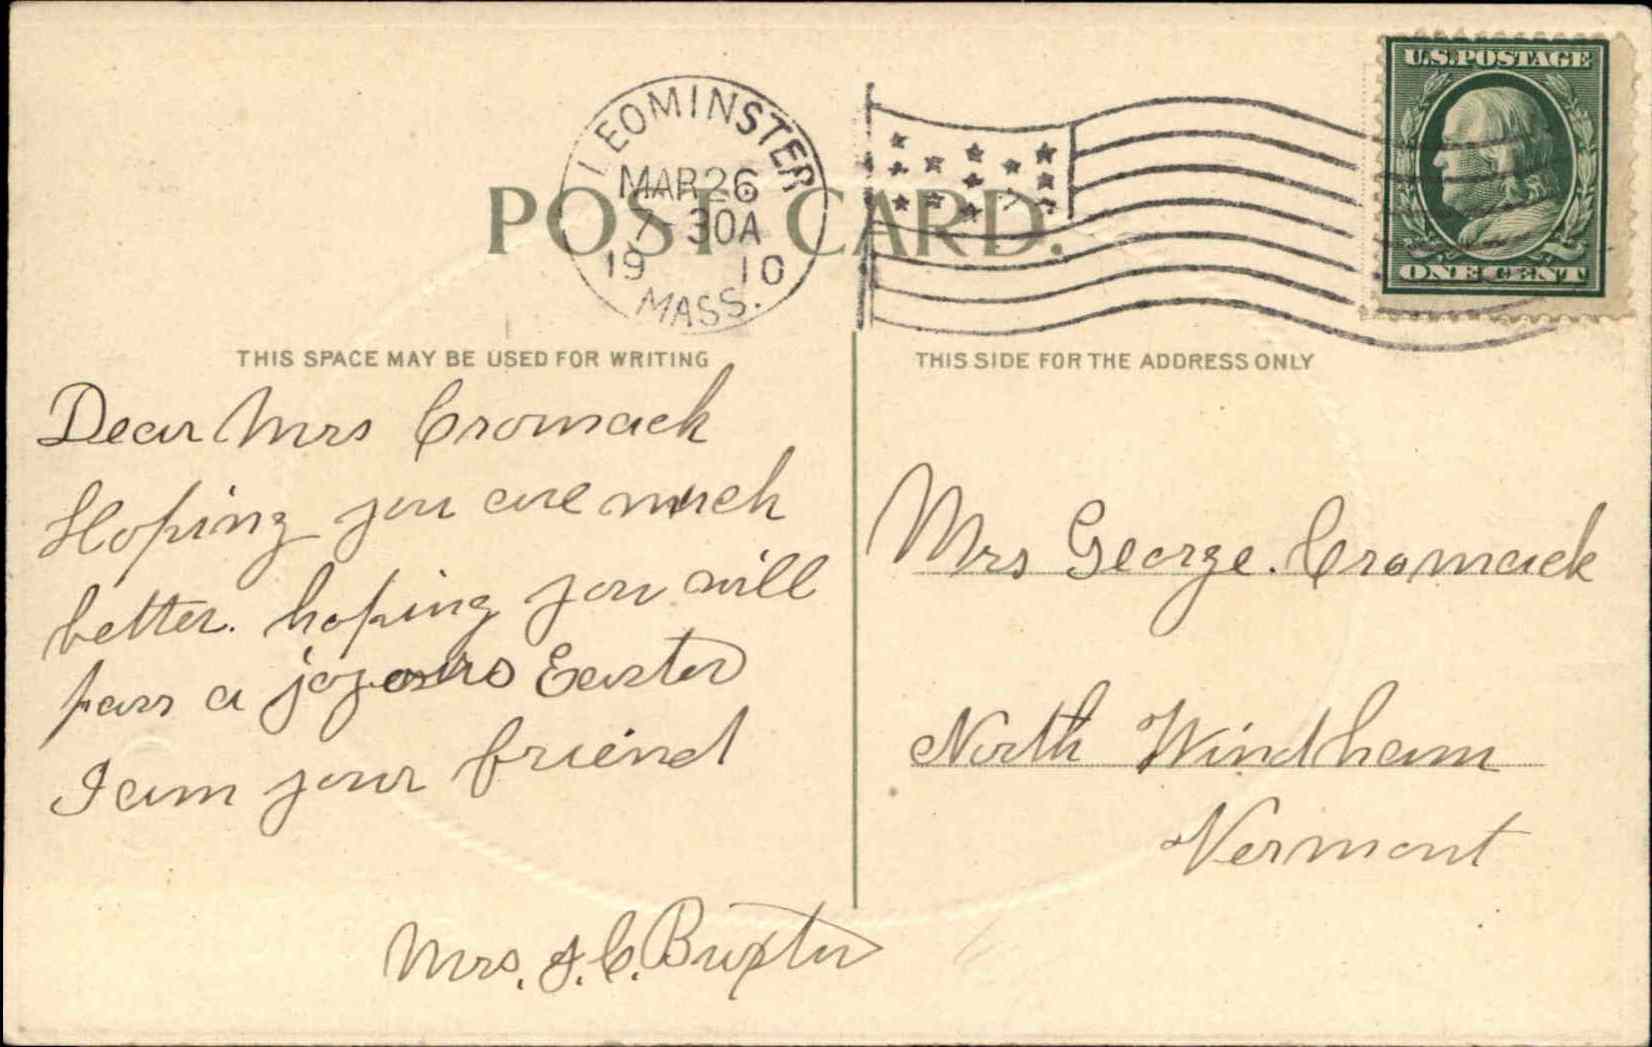 U.S. POSTAGE
ONE CENT
LEOMINSTER
MAR 26
7-30A
19 10
MASS.
POST CARD.
THIS SPACE MAY BE USED FOR WRITING
Dear Mrs Cromack
Hoping you are much
better. hoping you will
pass a joyous Easter
I am your friend
Mrs. A. C. Buxton
THIS SIDE FOR THE ADDRESS ONLY
Mrs George. Cromack
North Windham
Vermont